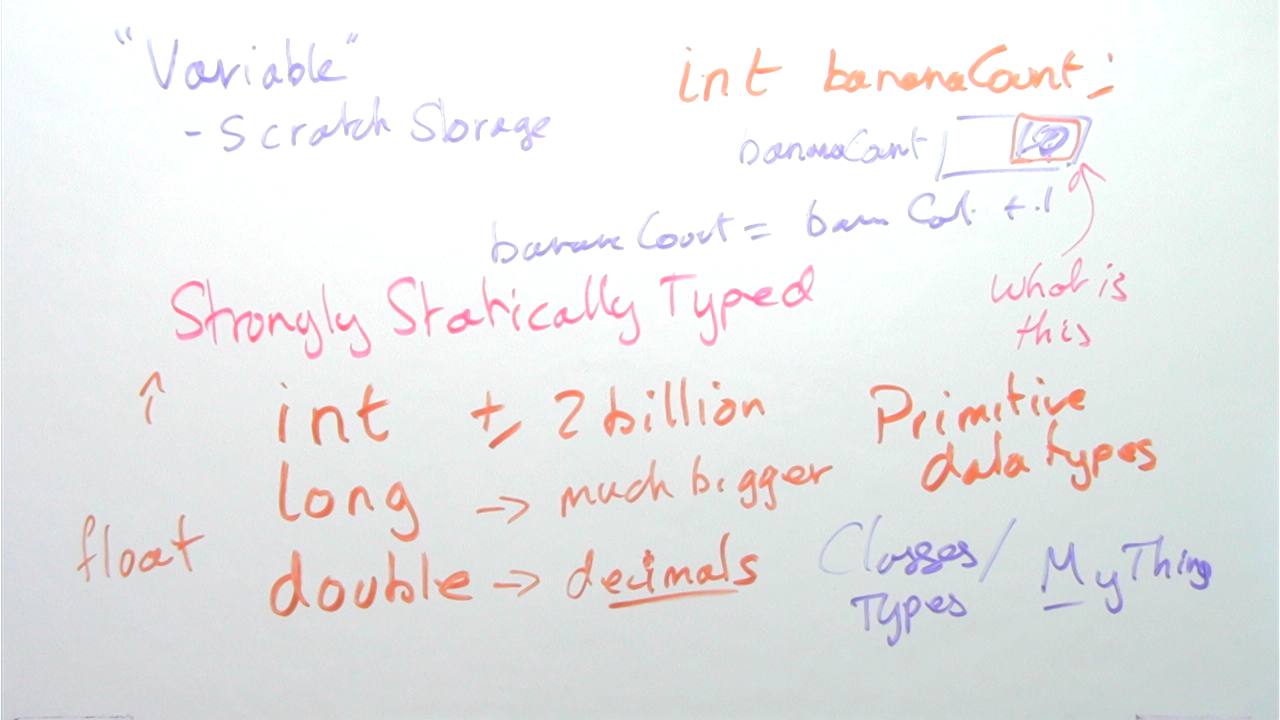 "Variable"
- Scratch Storage
int bananaCount;
bananaCount
bananaCount = bananCot + 1
What is
this
Strongly Statically Typed
int ± 2 billion
long -> much bigger
float
double -> decimals
Primitive
data types
Classes/
Types
MyThing